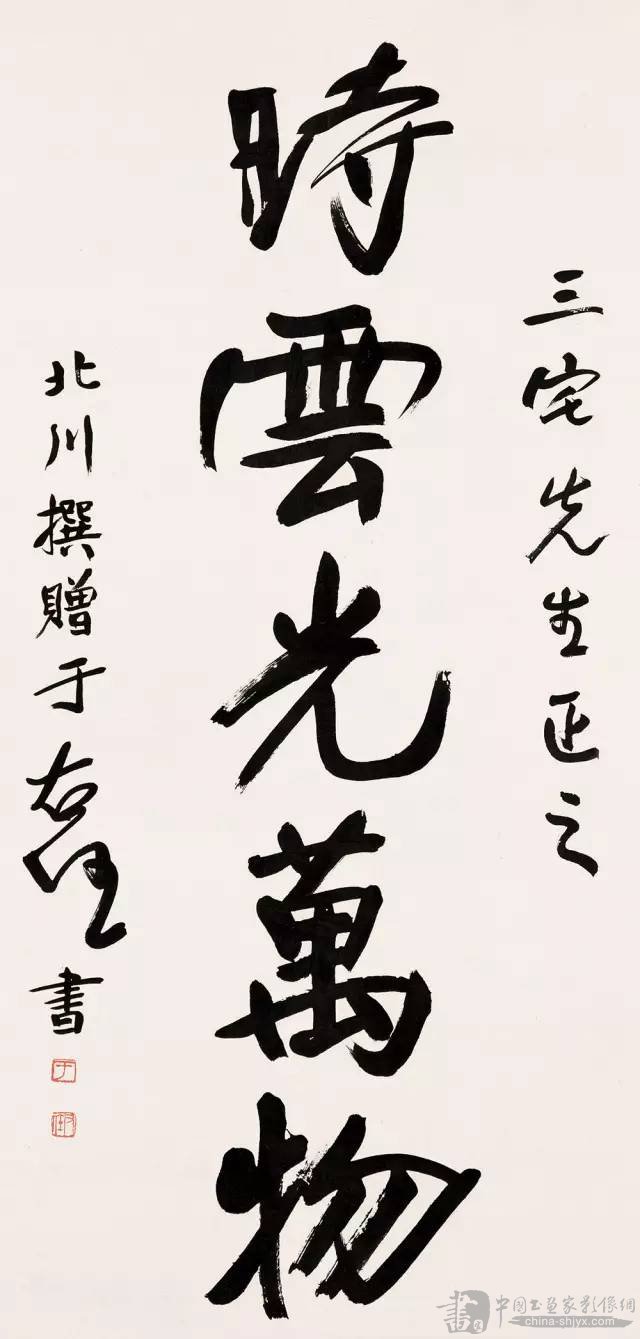 三宅先生正之
時雲光萬物
北川撰贈于右任書
于
中国书画家影像網
china-shjyx.com